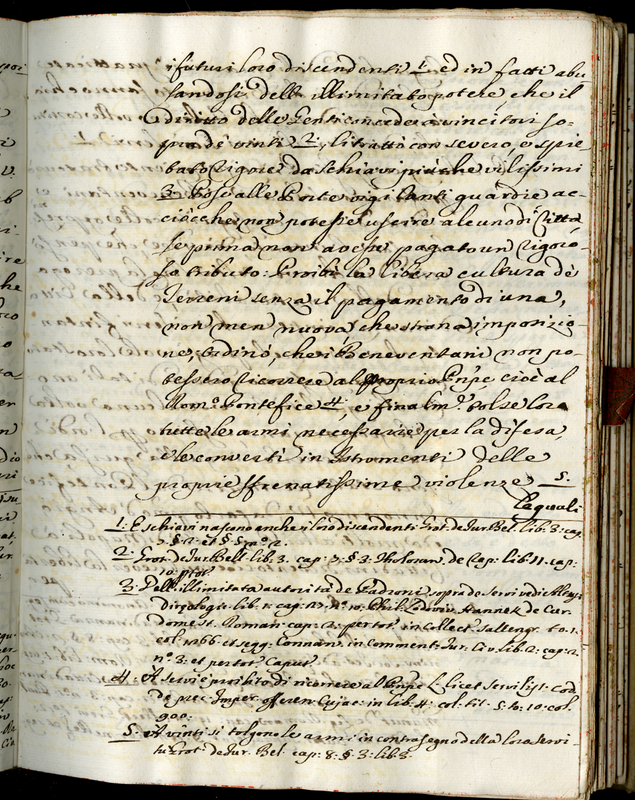 i futuri loro discendenti 1. ed in fatti abu
sandosi dell'illimitato potere che il
diritto delle Genti concede à vincitori so-
pra de vinti 2. li trattò con severo, e spie-
tato rigore da schiavi più che vilissimi
3. Posè alle Porte vigilanti guardie ac-
ciòcche non potesse uscire alcuno di Città
se prima non avesse pagato un rigoro-
so tributo: Proibì la libera cultura de
Terreni senza il pagamento di una,
non men nuova, che strana imposizio-
ne, ordinò, che i Beneventani non po-
tessero ricorrere al proprio Pnpe cioè al
Rom.o Pontefice 4. e finalm.e tolse loro
tutte le armi necessarie per la difesa,
e le convertì in Istromenti delle
proprie sfrenatissime violenze 5.
Le quali
1. E schiavi nascono anche i loro discendenti Grot. de Jur. Bel. lib. 3. cap.
7. § 2. et §§ n.o 2.
2. Grot. de Jur. Bell. lib. 3. cap. 7. § 3. Tholosan. de Cap. lib. 11. cap.
10. p. tot.
3. Dell'illimitata autorità de Padroni sopra de servi vedi
lib. 1. cap. 17. n.o 10. Phil.
Roman. cap. 2. per tot. in Collect. Sallengr. to. 1.
col. 1266. et segg. Connan. in Comment. Jur. Civ. lib. 2. cap. 2.
n.o 3. et per tot. Caput.
4. A servi è proibito di ricorrere al Pnpe L. licet servilis 1. Cod.
de prec. Imper. offeren. Cujac. in lib. 4. col. tit. 5. to. 10. col.
900.
5. A vinti si tolgono le armi in contrasegno della loro servi-
tù Grot. de Jur. Bel. cap. 8. § 3. lib. 3.